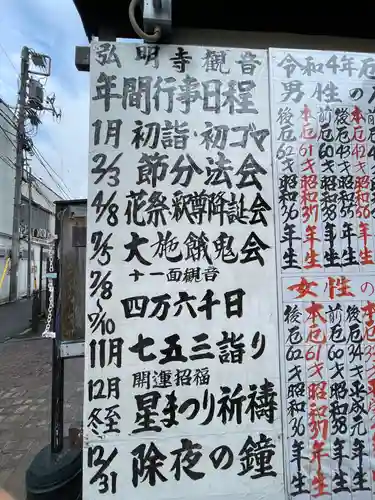 弘明寺観音
年間行事日程
1月 初詣・初ゴマ
2/3 節分法会
4/8 花祭釈尊降誕会
7/5 大施餓鬼会
7/8 十一面観音
7/10 四万六千日
11月 七五三詣り
12月 開運招福
冬至 星まつり祈祷
12/31 除夜の鐘
令和4年厄
男性の
後厄62才昭和36年生
本厄61才昭和37年生
前厄
後厄43才昭和
本厄42才昭和56年生
女性の
後厄62才昭和36年生
本厄61才昭和37年生
前厄60才昭和38年生
後厄34才平成元年生
本厄